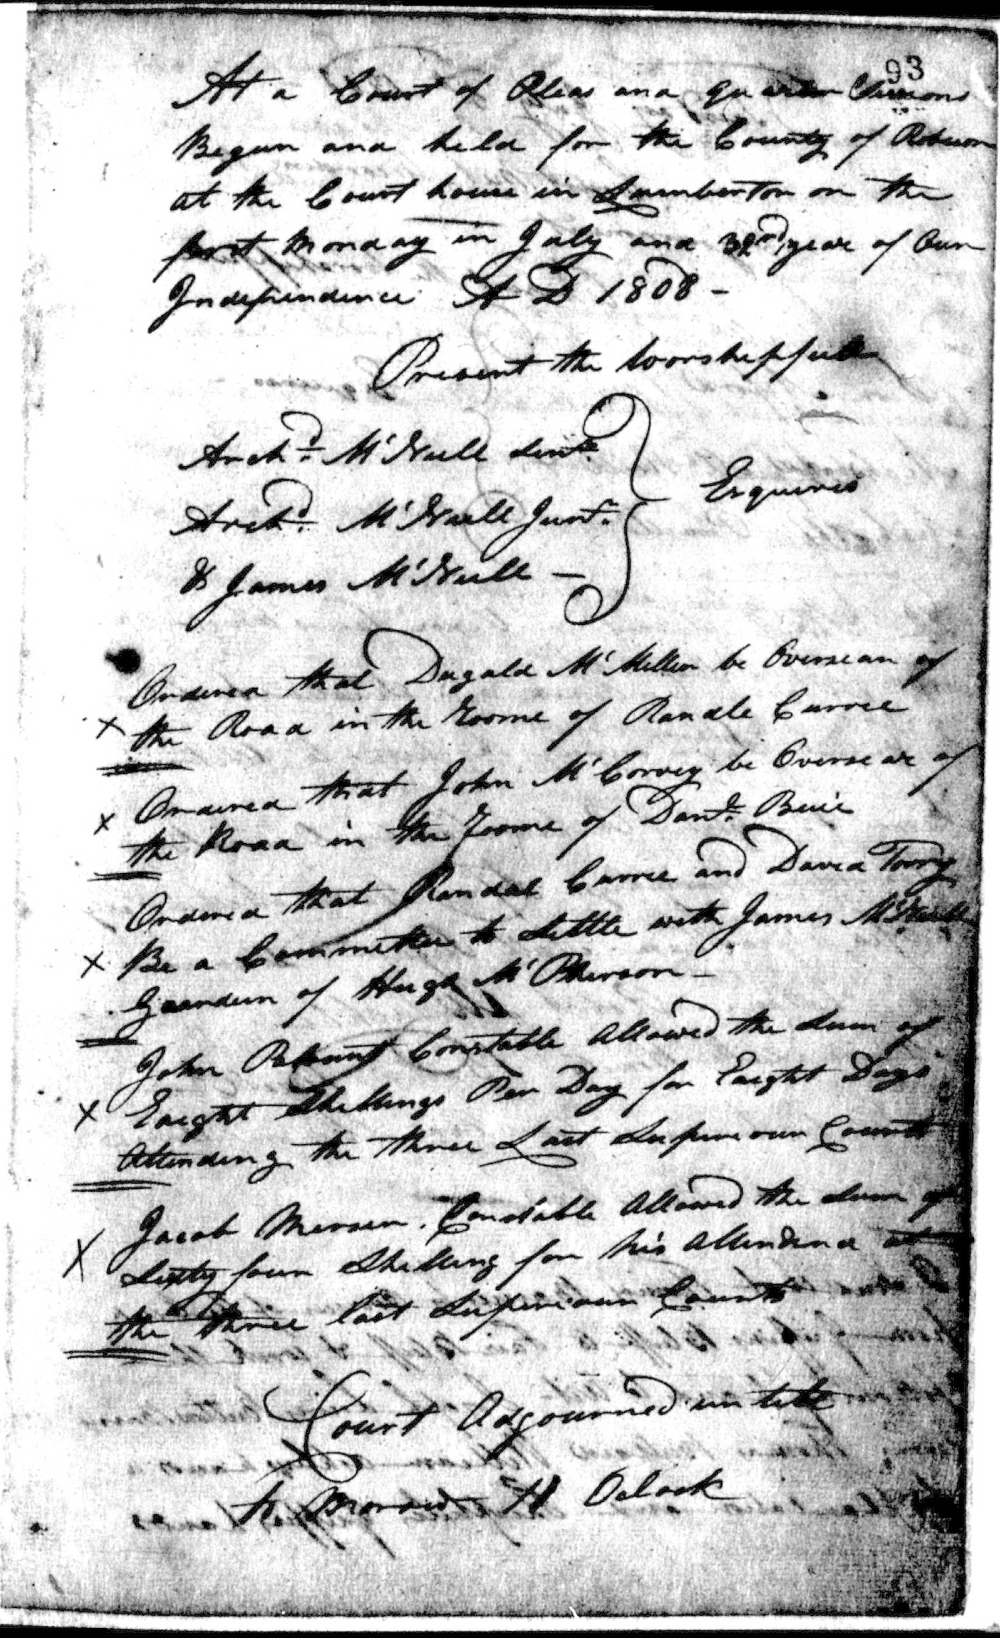 93
At a Court of Pleas and quarter Sessions
Begun and held for the County of Robeson
at the Court house in Lumberton on the
first Monday in July and 32nd year of Our
Independence A D 1808 -
Present the Worshepfull
Archd. McNeill Senr.
Archd. McNeill Junr. Esquires
& James McNeill -
Ordered that Dugald McMillin be Oversear of
the Road in the Roome of Randle Currie
Ordered that John McCorvey be Overseear of
the Road in the Roome of Danl. Buie
Ordered that Randal Currie and David Torry
Be a Committee to Settle with James McNeill
Guardein of Hugh McPherson -
John Constable Allowed the Sum of
Eaight Shellings Per Day for Eaight Days
Attending the three Last Superiour Courts
Jacob Constable Allowed the Sum of
Sixty four Shelling for his Attendance at
the three last Superiour Courts
Court Adjourned untill
to Morrow Oclock